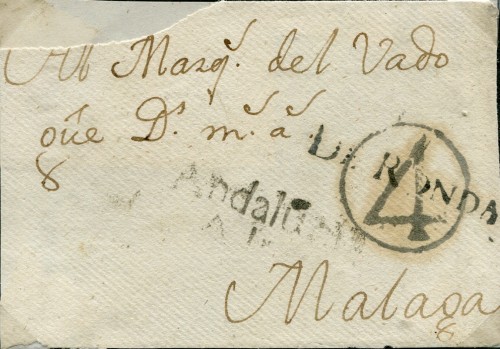 Al Marq.s del Vado
que D.s m.s a.s
DE RONDA
4
Andalucia
Malaga